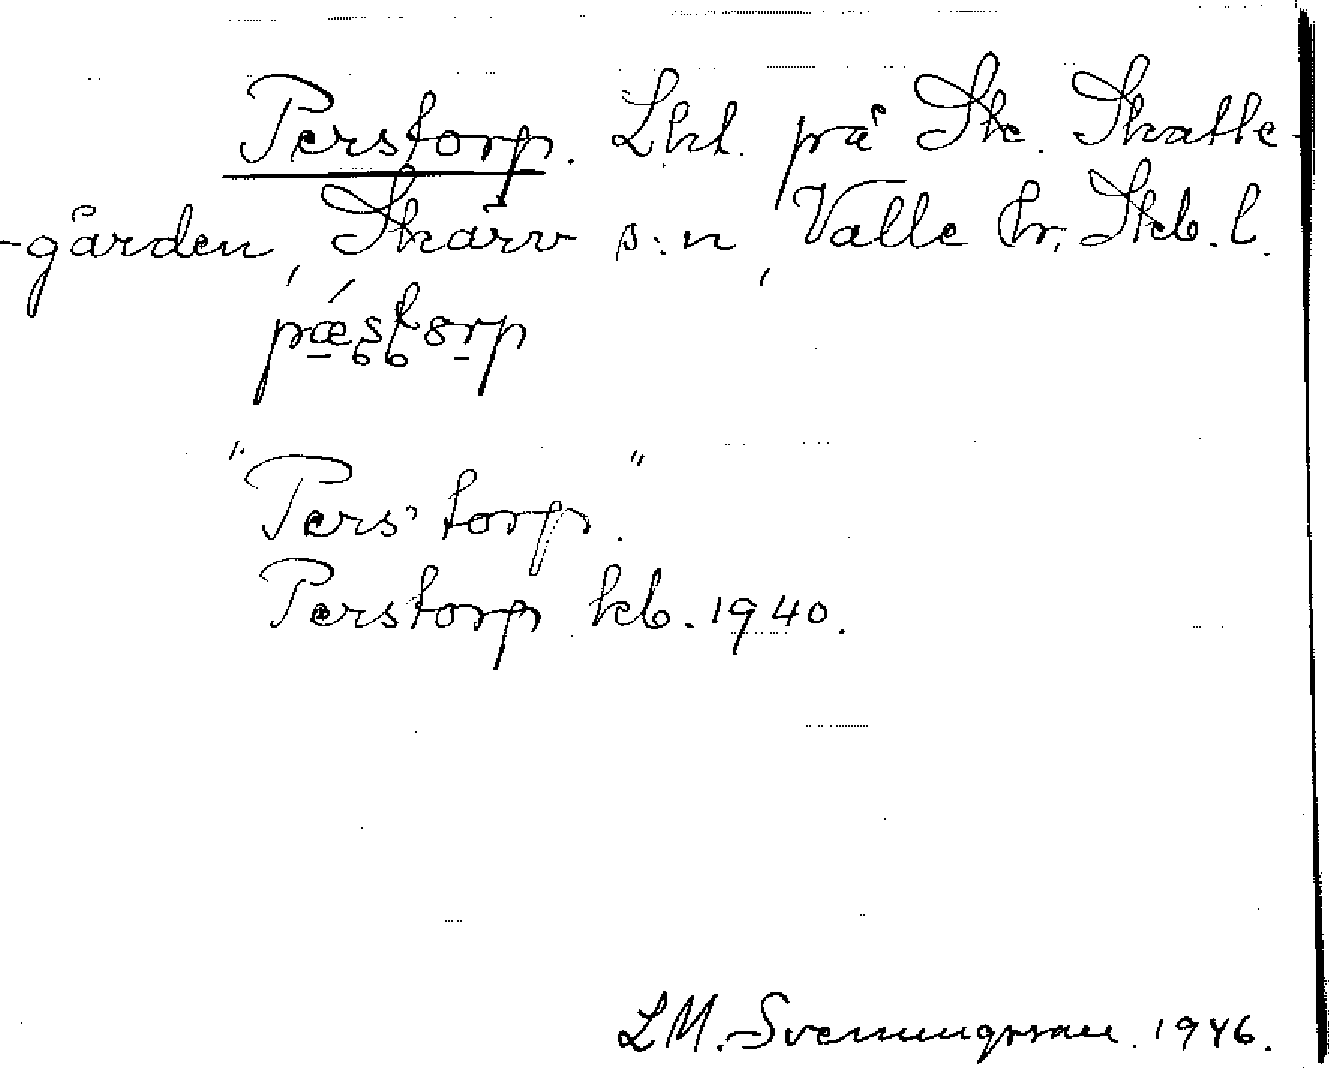 Perstorp. Lht. på Sk. Skatte-
-gården, Skärv s:n, Valle hr, Skb. l.
"Pers' torp."
Perstorp kb. 1940.
L M. Svenungsson. 1946.